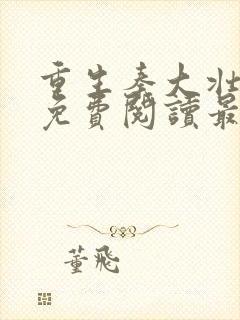 重生秦大壯
免費閱讀最
董飛